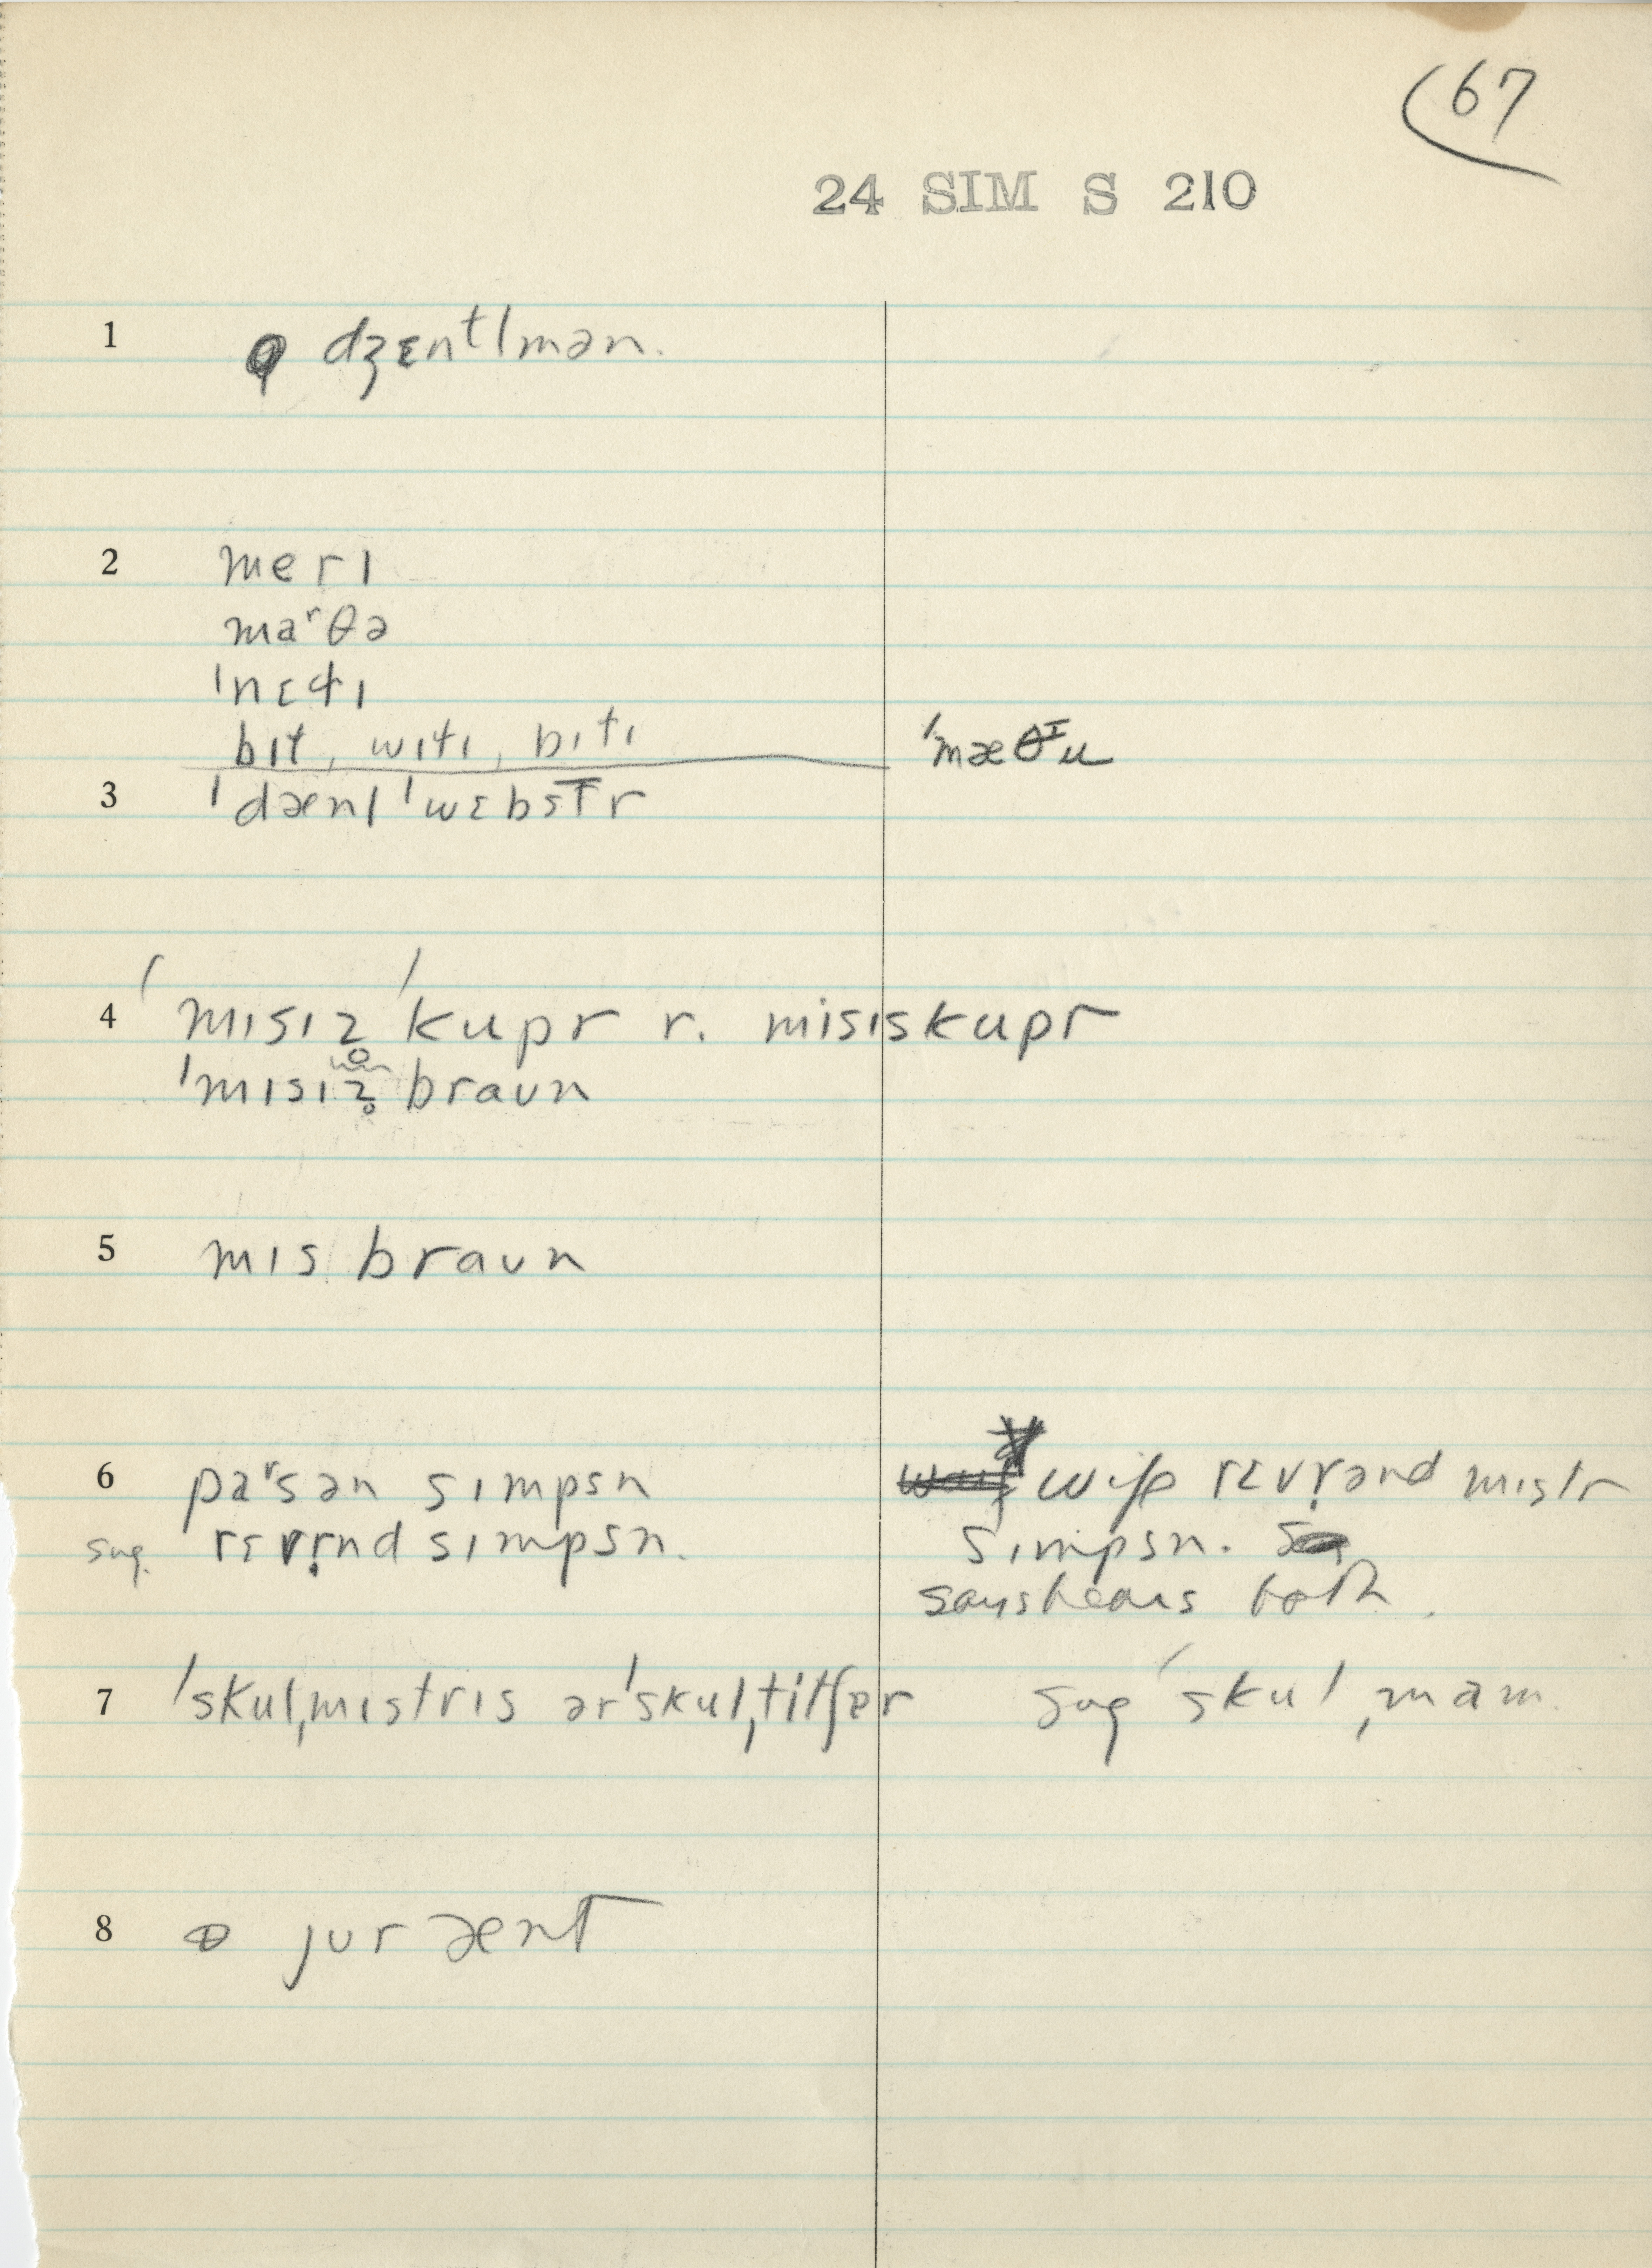 67
24 SIM S 210
1 dʒɛntlmən.
2 merɪ
maʳθə
ˈnɛtɪ
bɪt, wɪtɪ, bɪtɪ
ˈmæθɪu
3 ˈdænl ˈwɛbstr
4 ˈmɪsɪz ˈkupr r. misiskupr
ˈmɪsɪz̥ braʊn
5 mɪs braʊn
6 paʳsən sɪmpsn wife rɛvr̩ənd mistr
sug. rɛvr̩nd sɪmpsn. sɪmpsn.
says hears both.
7 ˈskulˌmɪstrɪs ər ˈskulˌtitʃər sug ˈskulˌmam.
8 jʊr ænt